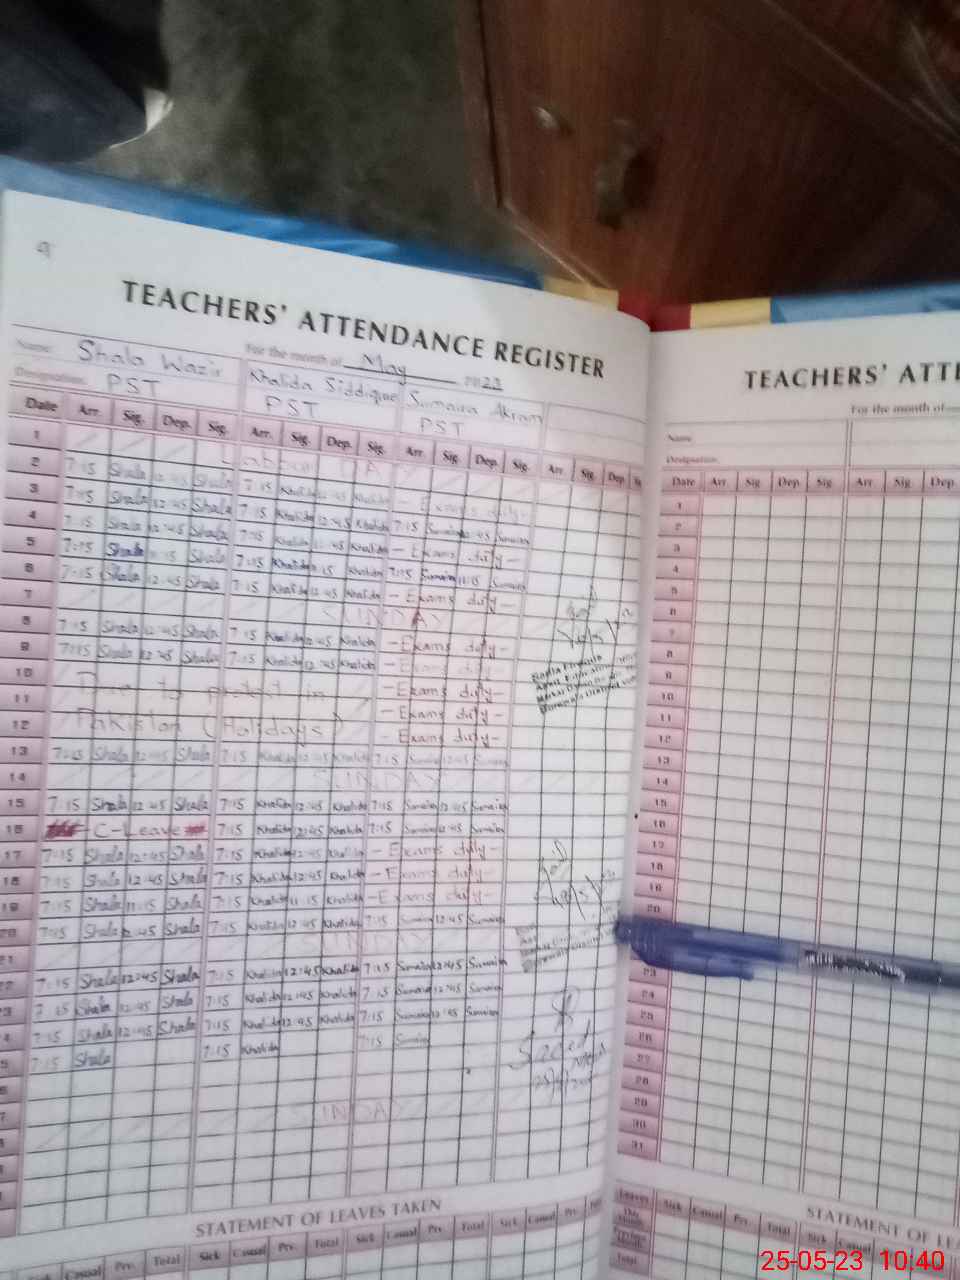 9
TEACHERS' ATTENDANCE REGISTER
Name: Shala Wazir For the month of May 2023
Khalida Siddique Sumaira Akram
Designation: PST PST PST
Date Arr. Sig. Dep. Sig. Arr. Sig. Dep. Sig. Arr. Sig. Dep. Sig. Arr. Sig. Dep.
1 Labour DAY
2 7:15 Shala 12:45 Shala 7:15 Khalida 12:45 Khalida - Exams duty-
3 7:15 Shala 12:45 Shala 7:15 Khalida 12:45 Khalida 7:15 Sumaira 12:45 Sumaira
4 7:15 Shala 12:45 Shala 7:15 Khalida 12:45 Khalida - Exams duty-
5 7:15 Shala 11:15 Shala 7:15 Khalida 11:15 Khalida 7:15 Sumaira 11:15 Sumaira
6 7:15 Shala 12:45 Shala 7:15 Khalida 12:45 Khalida - Exams duty-
7 SUNDAY
8 7:15 Shala 12:45 Shala 7:15 Khalida 12:45 Khalida - Exams duty-
9 7:15 Shala 12:45 Shala 7:15 Khalida 12:45 Khalida - Exams duty-
10 Due to protest in - Exams duty-
11 Pakistan (Holidays) - Exams duty-
12 - Exams duty-
13 7:15 Shala 12:45 Shala 7:15 Khalida 12:45 Khalida 7:15 Sumaira 12:45 Sumaira
14 SUNDAY
15 7:15 Shala 12:45 Shala 7:15 Khalida 12:45 Khalida 7:15 Sumaira 12:45 Sumaira
16 C-Leave 7:15 Khalida 12:45 Khalida 7:15 Sumaira 12:45 Sumaira
17 7:15 Shala 12:45 Shala 7:15 Khalida 12:45 Khalida - Exams duty-
18 7:15 Shala 12:45 Shala 7:15 Khalida 12:45 Khalida - Exams duty-
19 7:15 Shala 11:15 Shala 7:15 Khalida 11:15 Khalida - Exams duty-
20 7:15 Shala 12:45 Shala 7:15 Khalida 12:45 Khalida 7:15 Sumaira 12:45 Sumaira
21 SUNDAY
7:15 Shala 12:45 Shala 7:15 Khalida 12:45 Khalida 7:15 Sumaira 12:45 Sumaira
7:15 Shala 12:45 Shala 7:15 Khalida 12:45 Khalida 7:15 Sumaira 12:45 Sumaira
7:15 Shala 12:45 Shala 7:15 Khalida 12:45 Khalida 7:15 Sumaira 12:45 Sumaira
7:15 Shala 7:15 Khalida 7:15 Sumaira
SUNDAY
Saeed
STATEMENT OF LEAVES TAKEN
Casual Prv. Total Sick Casual Prv. Total Sick Casual Prv. Total Sick Casual Prv.
TEACHERS' ATTE
For the month of
Name
Designation:
Date Arr. Sig. Dep. Sig. Arr. Sig. Dep.
1
2
3
4
5
6
7
8
9
10
11
12
13
14
15
16
17
18
19
20
23
24
25
26
27
28
29
30
31
STATEMENT OF LEA
Leaves Sick Casual Prv. Total Sick Casual Prv. Total
Total
25-05-23 10:40